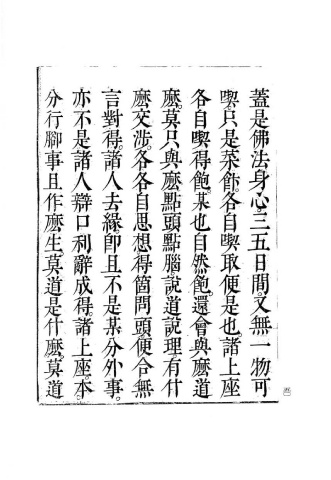 蓋是佛法身心三五日間。又無一物可
喫。只是菜飰。各自喫取便是也。諸上座
各自喫得飽。某也自然飽。還會與麽道
麽。莫只與麽點頭點腦說道說理有什
麽交涉。各各自思想得箇問頭便合無
言對得。諸人去緣。卽且不是某分外事。
亦不是諸人辯口利辭成得。諸上座。本
分行腳事且作麽生。莫道是什麽。莫道